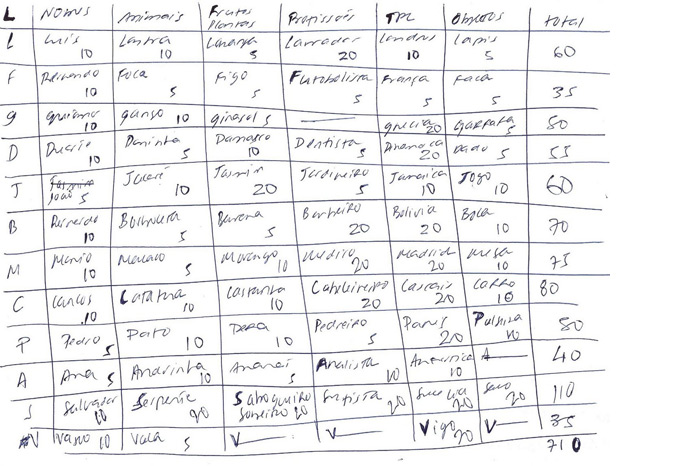 L Nomes Animais Frutos Plantas Profissões TPL Objectos total
L Luís 10 Lontra 10 Laranja 5 Lavrador 20 Londres 10 Lapis 5 60
F Fernando 10 Foca 5 Figo 5 Futebolista 5 França 5 Faca 5 35
g 10 ganso 10 girasol 5 — grecia 20 garrafa 5 50
D Duarte 10 Doninha 5 Damasco 10 Dentista 5 Dinamarca 20 Dado 5 55
J João 5 Jacaré 10 Jasmin 20 Jardineiro 5 Jamaica 10 Jogo 10 60
B Bernardo 10 5 Banana 5 Barbeiro 20 Bolivia 20 Bola 10 70
M Mario 10 Macaco 5 Morango 10 Medico 20 Madrid 20 Mesa 10 75
C Carlos 10 Catatua 10 Castanha 10 Cabeleireiro 20 Cascais 20 Carro 10 80
P Pedro 5 Pato 10 Pera 10 Pedreiro 5 Paris 20 10 50
A Ana 5 Andorinha 10 Ananás 5 Analista 10 Antartica 10 A — 40
S Salvador 10 Serpente 20 Sabogueiro 20 20 Suecia 20 Saco 20 110
V Vasco 10 Vaca 5 V — V — Vigo 20 V — 35
710